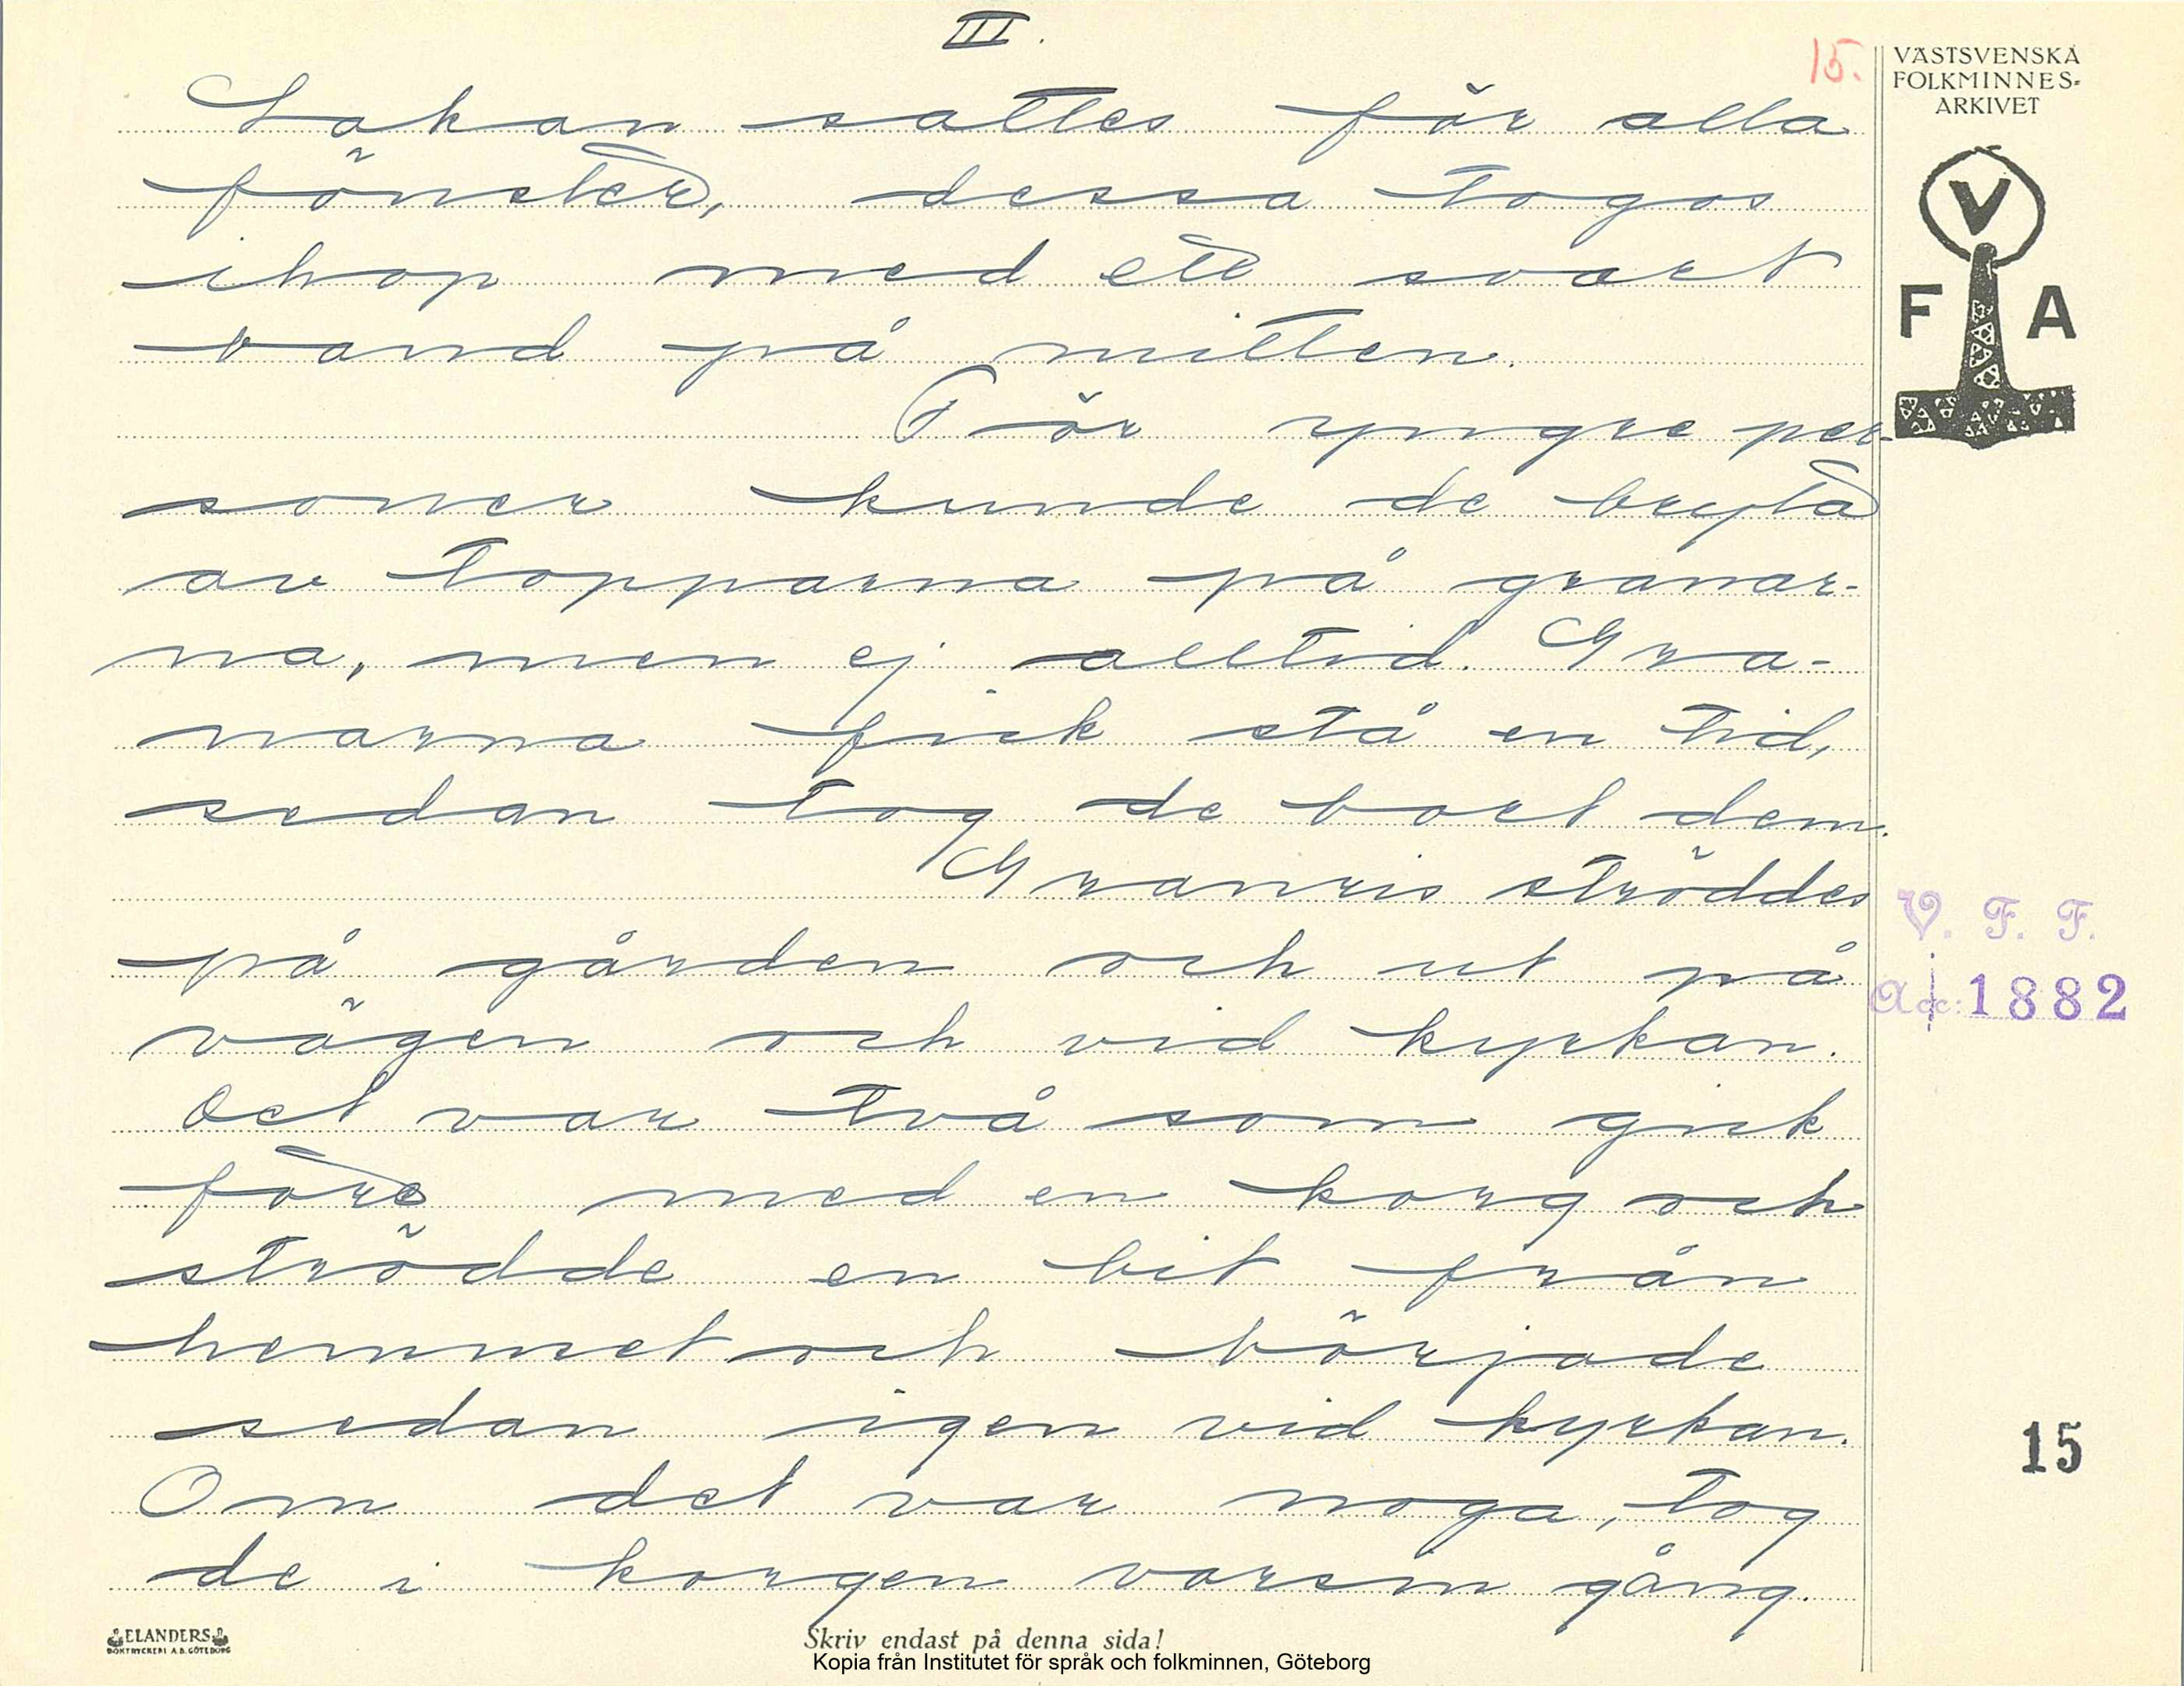 III.
15.
VÄSTSVENSKA
FOLKMINNES-
ARKIVET
V
F A
Lakan sattes för alla
fönster, dessa togos
ihop med ett svart
band på mitten.
För yngre per-
soner kunde de bryta
av topparna på granar-
na, men ej alltid. Gra-
narna fick stå en tid,
sedan tog de bort dem.
Granris ströddes
på gården och ut på
vägen och vid kyrkan.
Det var två som gick
före med en korg och
strödde en bit från
hemmet och började
sedan igen vid kyrkan.
Om det var noga, tog
de i korgen varsin gång.
V. F. F.
Acc: 1882
15
ELANDERS
BOKTRYCKERI A.B. GÖTEBORG
Skriv endast på denna sida!
Kopia från Institutet för språk och folkminnen, Göteborg